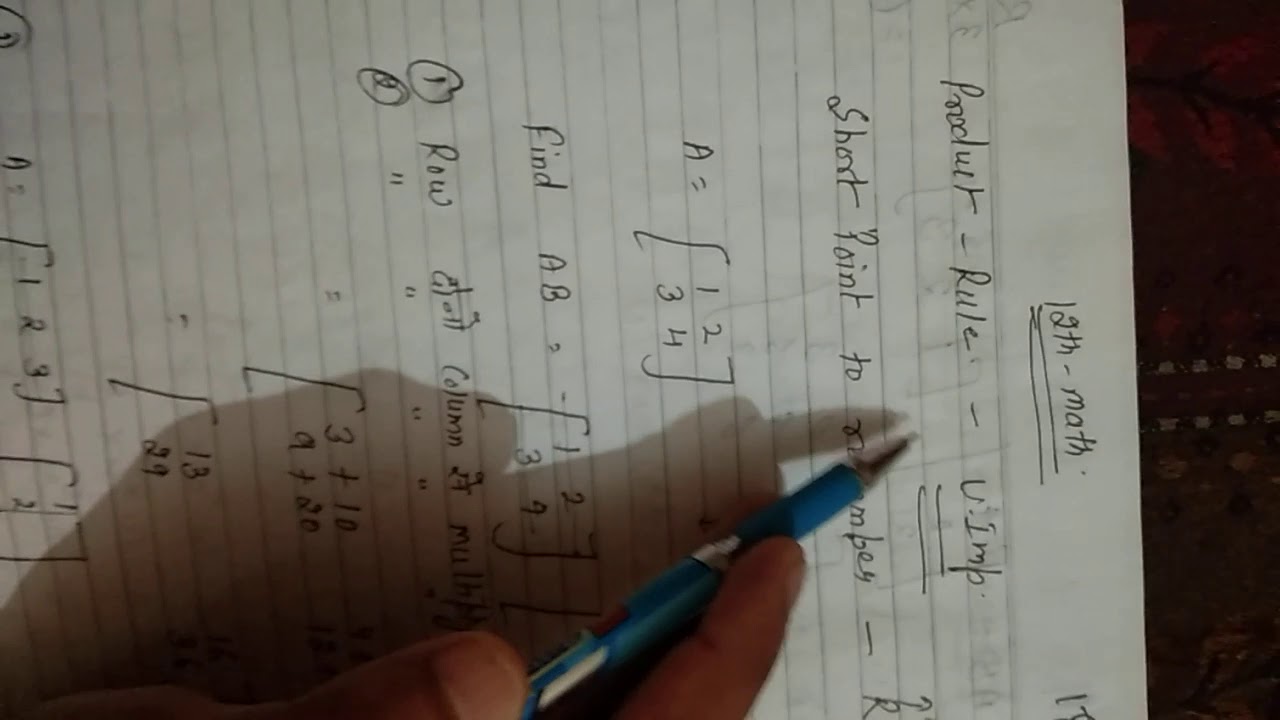 12th-math.
Product - Rule. - V. Imp.
Short Point to - R
A = [ 1 2
3 4 ]
Find AB = [ 1 2
3 4. ] [
① Row दोनों column से multiply
② " " " "
= [ 3 + 10
9 + 20
= [ 13 16
29 36
A = [ 1 2 3 ] [ 1
2